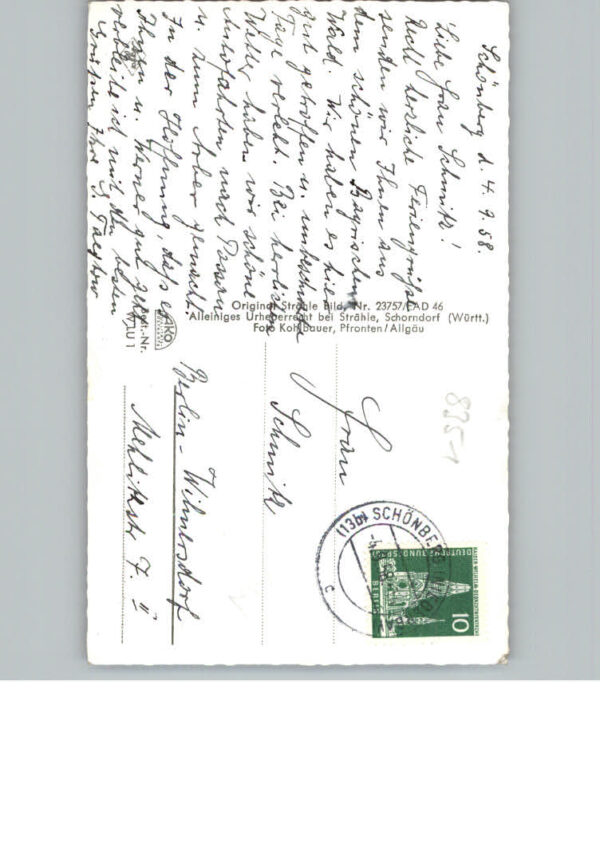 Schönberg d. 4.9.58.
Liebe Frau Schmitz!
Recht herzliche Feriengrüße
senden wir Ihnen aus
dem schönen Bayrischen
Wald. Wir haben es hier
gut getroffen u. unbeschwerte
Tage verlebt. Bei herrlichem
Wetter haben wir schöne
nach Passau
u. zum Arber gemacht.
In der Hoffnung, daß es
Ihnen u. Werner gut geht
verbleibe ich mit den besten
Grüßen Ihre
Original Strähle Bild, Nr. 23757/CAD 46
Alleiniges Urheberrecht bei Strähle, Schorndorf (Württ.)
Foto Kohlbauer, Pfronten/Allgäu
AKO
Best.-Nr.
WLU 1
Frau
Schmitz
Berlin-Wilmersdorf
Mehlitzstr 7. II
8351
(13b) SCHÖNBERG
c
DEUTSCHE BUNDESPOST
BERLIN
10